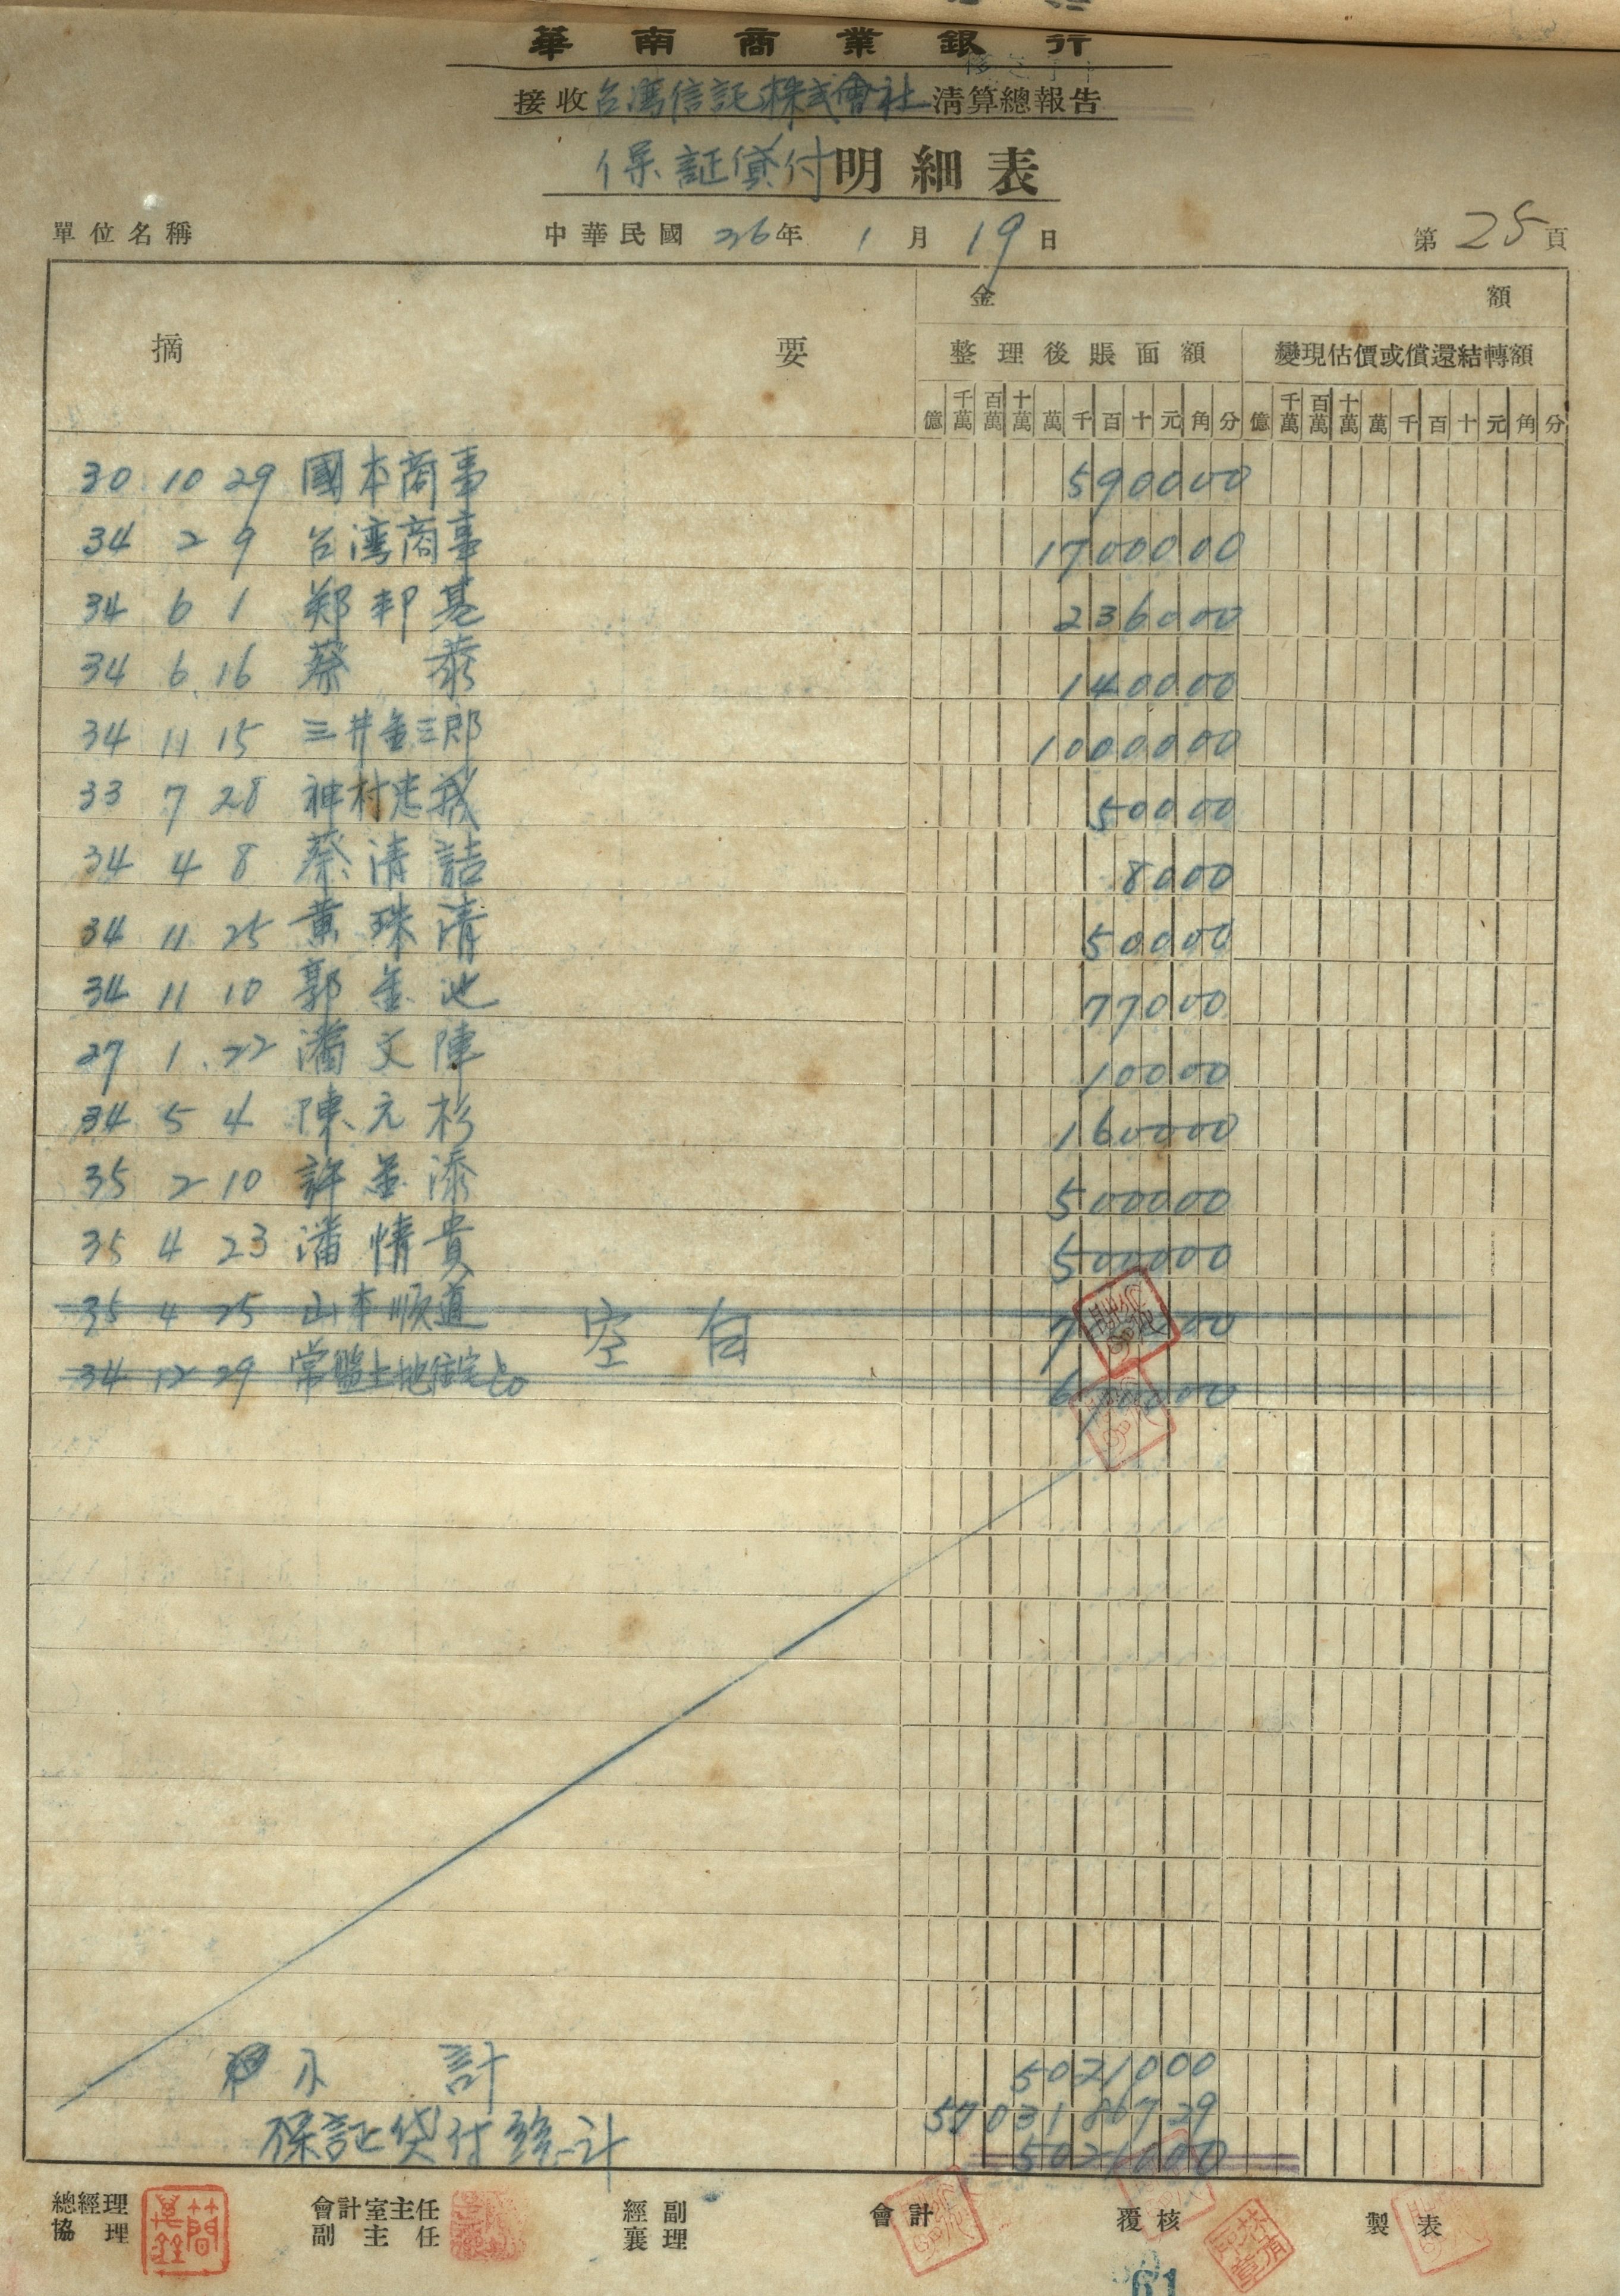 華南商業銀行
接收台湾信託株式會社清算總報告
保証貸付明細表
單位名稱 中華民國36年1月19日 第25頁
金額
摘要 整理後賬面額 變現估價或償還結轉額
億 千萬 百萬 十萬 萬 千 百 十 元 角 分 億 千萬 百萬 十萬 萬 千 百 十 元 角 分
30 10 29 國本商事 590000
34 2 9 台湾商事 1700000
34 6 1 鄭邦基 236000
34 6 16 蔡泰 140000
34 11 15 三井金三郎 1000000
33 7 28 神村忠我 50000
34 4 8 蔡清詰 8000
34 11 25 葉珠清 50000
34 11 10 郭金池 77000
27 1 22 潘文陣 10000
34 5 4 陳元杉 160000
35 2 10 許金添 500000
35 4 23 潘情貴 500000
35 4 25 山本順道
空白
34 12 29 常盤土地住宅
小計 5021000
保証貸付總計 5703186729
5021000
總經理 會計室主任 經副 會計 覆核 製表
協理 副主任 襄理
61